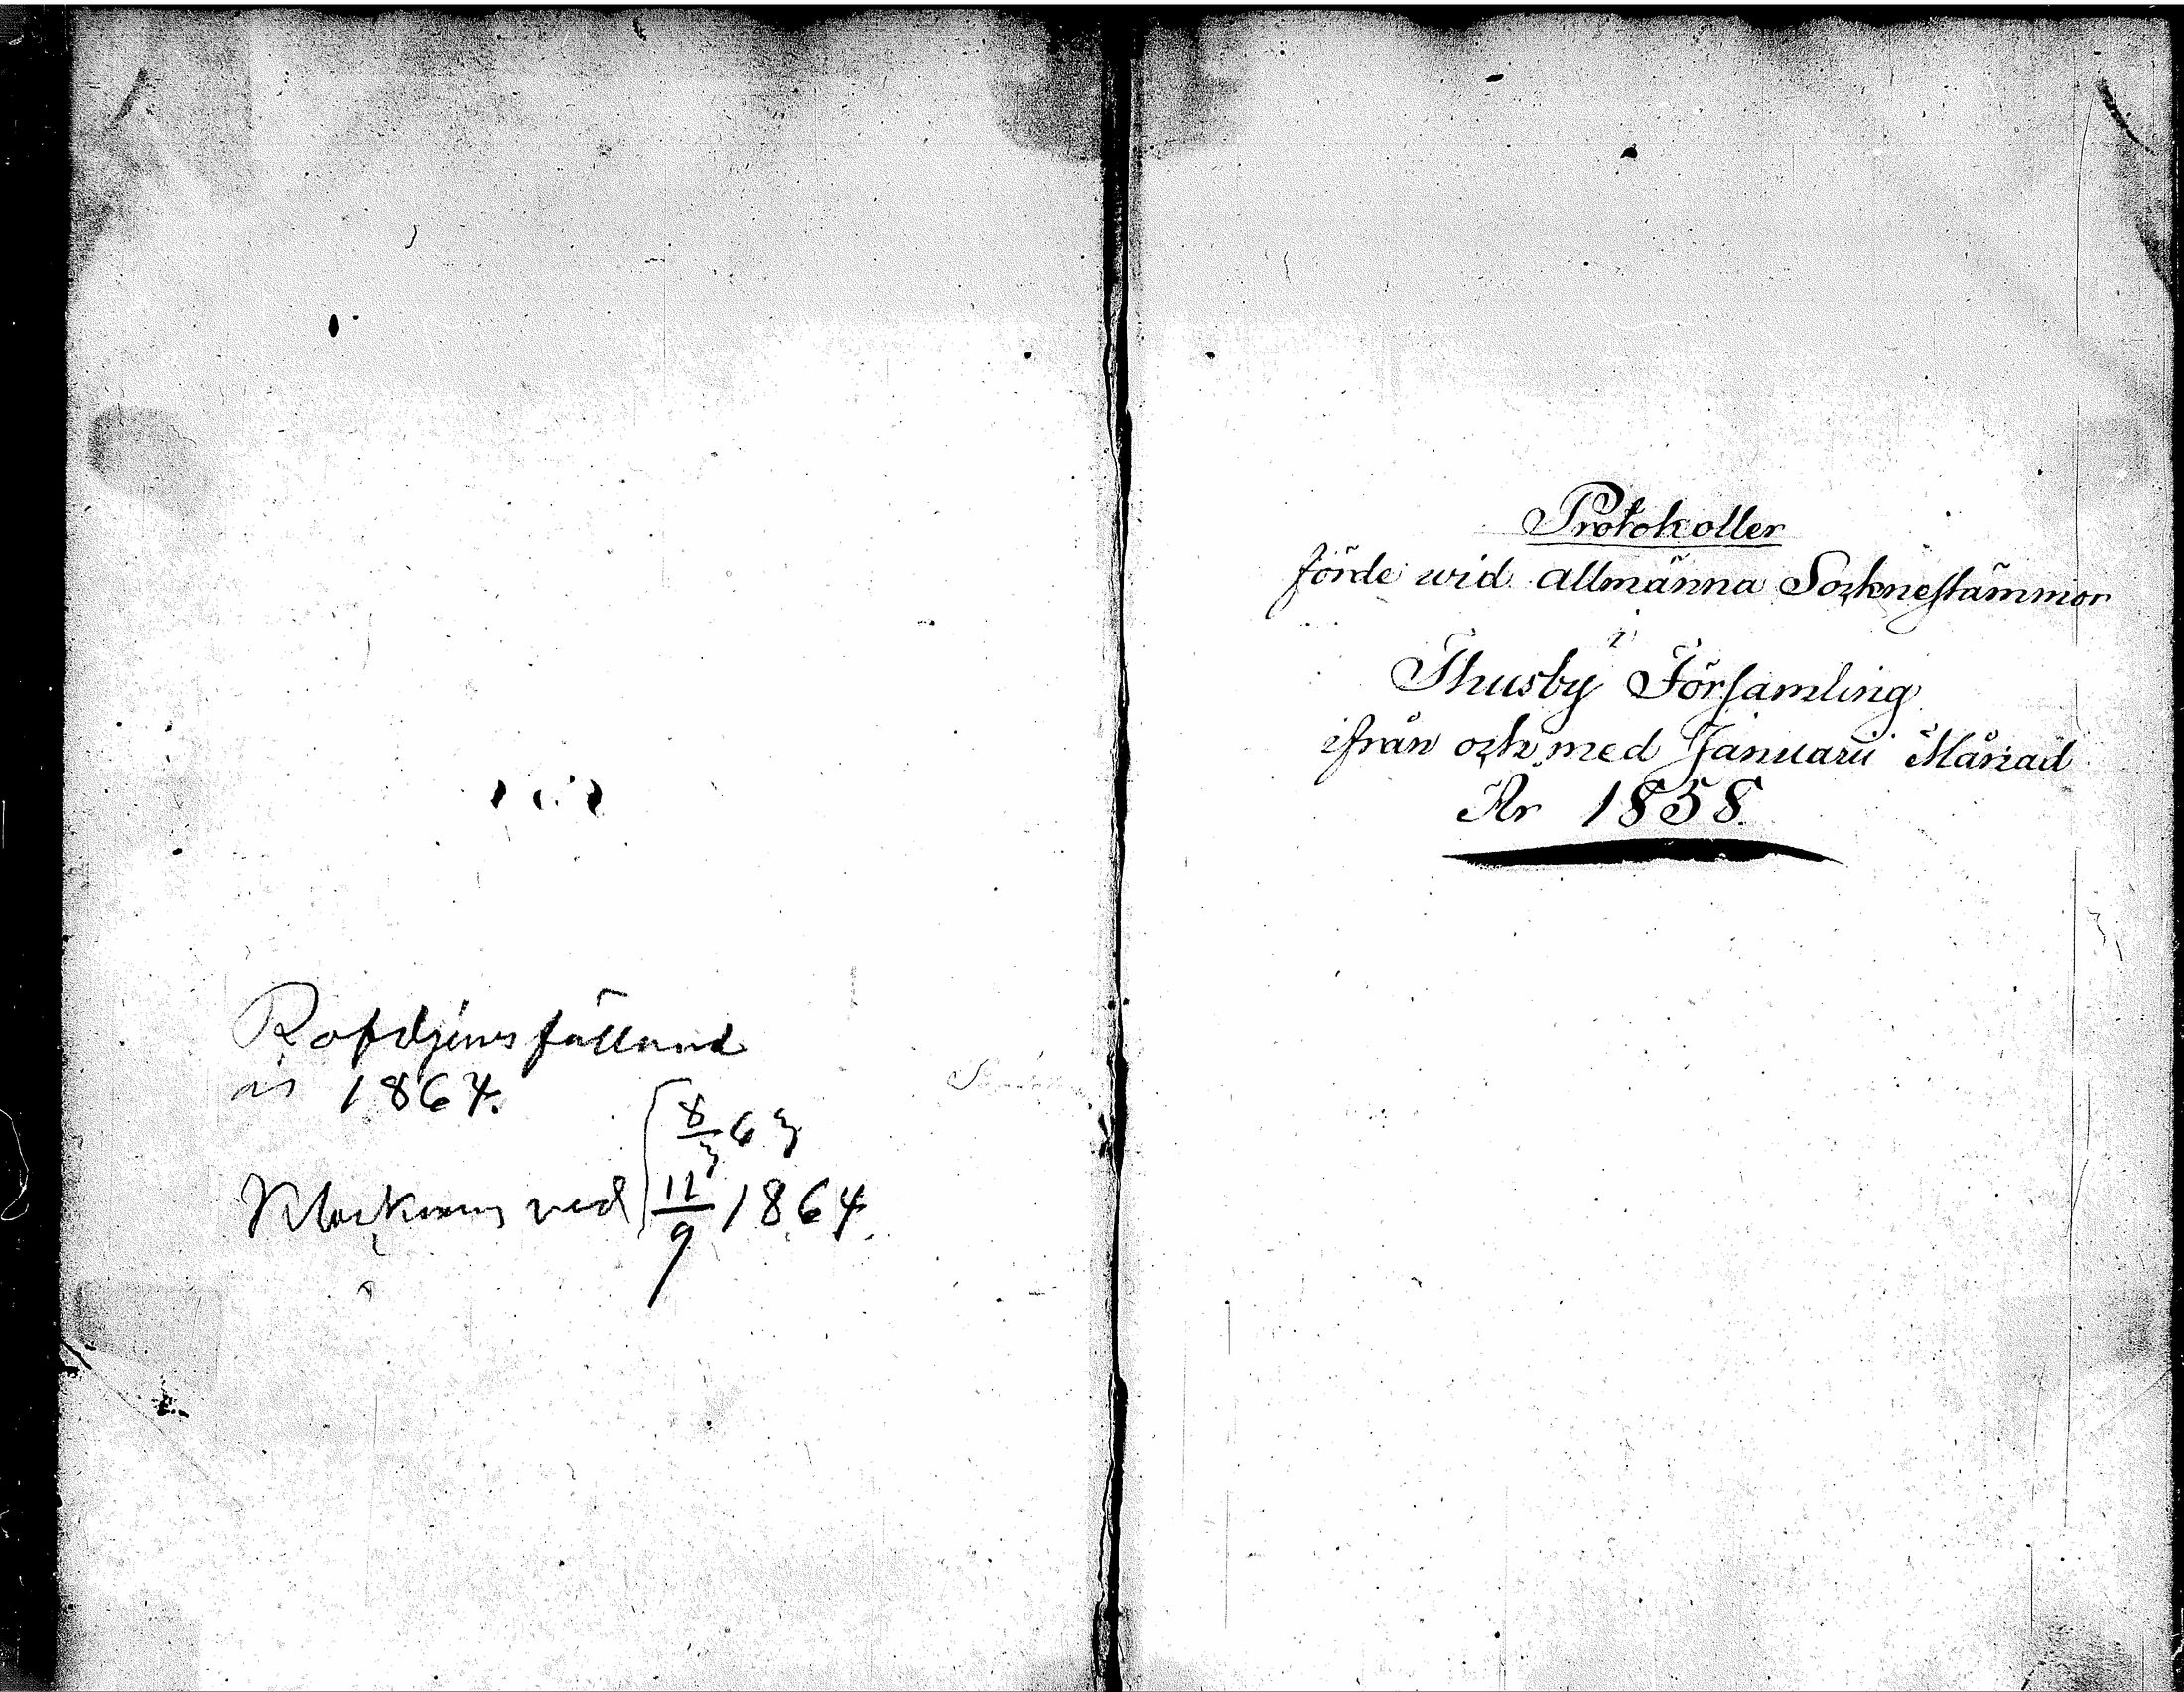 Rofdjurs fälland
år 1864.
8/3 63
Klockaren ved 12/9 1864.
Protokoller
förde wid allmänna Socknestämmor
i
Thusby Församling
ifrån och med Januarii Månad
År 1858.